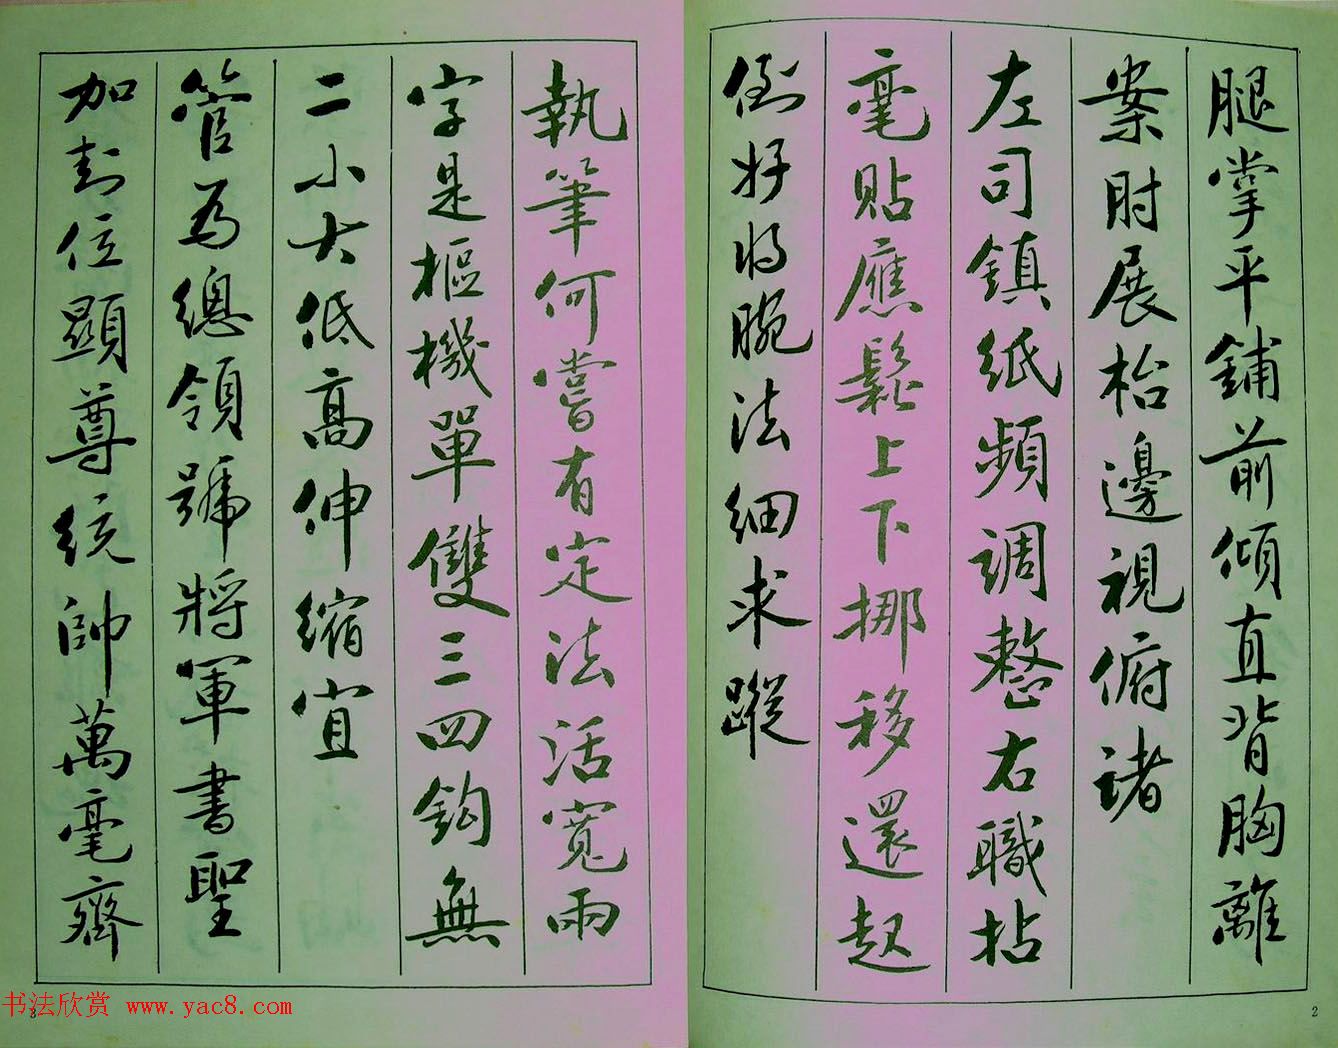 腿掌平鋪前傾直背胸離
案肘展枱邊視俯諸
左司鎮紙頻調整右職拈
毫貼應鬆上下挪移還起
倒好將腕法細求蹤
2
執筆何嘗有定法活寬兩
字是樞機單雙三四鈎無
二小大低高伸縮宜
管為總領號將軍書聖
加封位顯尊統帥萬毫齊
3
书法欣赏 www.yac8.com